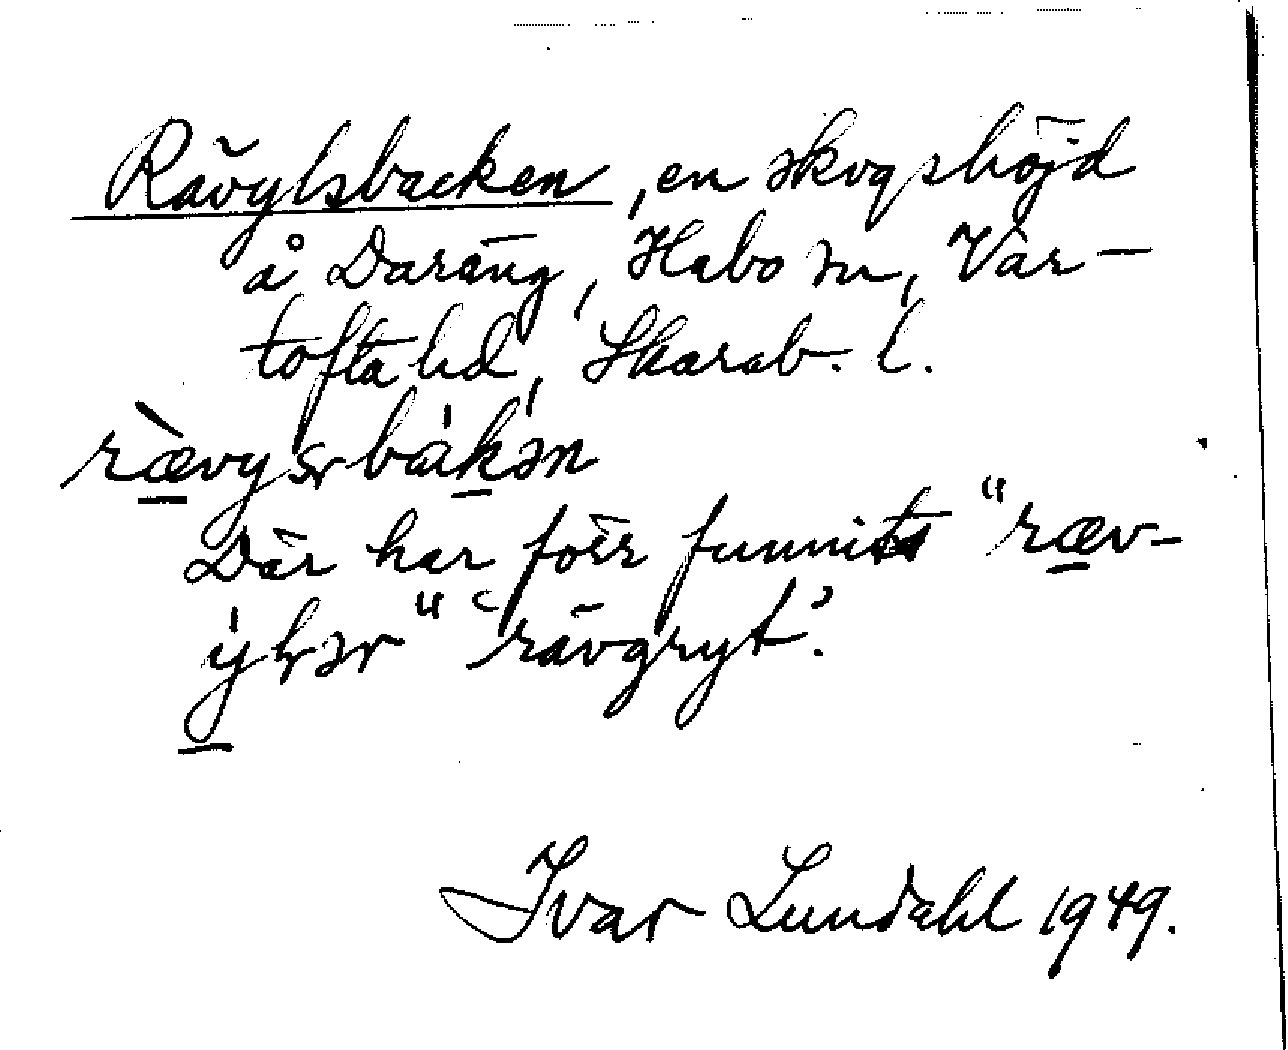 Rävylsbacken, en skogshöjd
å Daräng, Habo sn, Var-
tofta hd, Skarab. l.
Där har förr funnits "ræv-
"rävgryt".
Ivar Lundahl 1949.